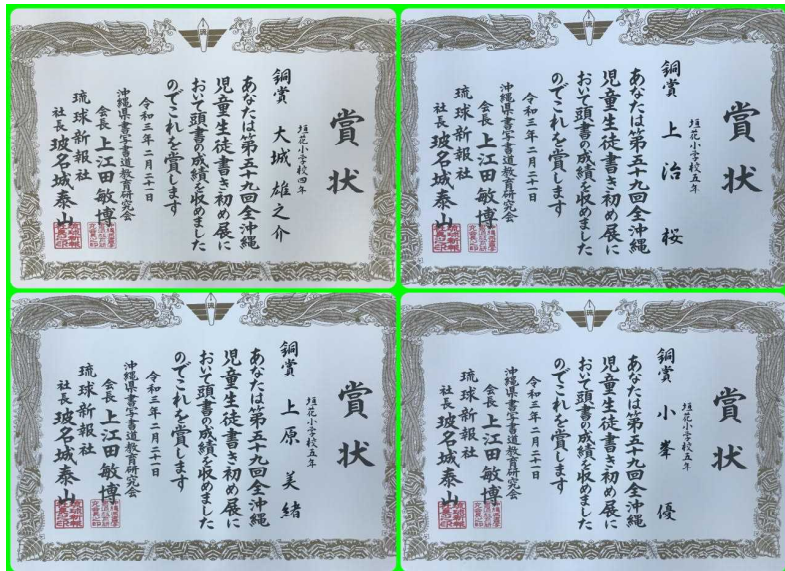 賞状
垣花小学校四年
銅賞 大城 雄之介
あなたは第五十九回全沖縄
児童生徒書き初め展に
おいて頭書の成績を収めました
のでこれを賞します
令和三年二月二十一日
沖縄県書写書道教育研究会
会長 上江田敏博
琉球新報社
社長 玻名城泰山
賞状
垣花小学校五年
銅賞 上治 桜
あなたは第五十九回全沖縄
児童生徒書き初め展に
おいて頭書の成績を収めました
のでこれを賞します
令和三年二月二十一日
沖縄県書写書道教育研究会
会長 上江田敏博
琉球新報社
社長 玻名城泰山
賞状
垣花小学校五年
銅賞 上原 美緒
あなたは第五十九回全沖縄
児童生徒書き初め展に
おいて頭書の成績を収めました
のでこれを賞します
令和三年二月二十一日
沖縄県書写書道教育研究会
会長 上江田敏博
琉球新報社
社長 玻名城泰山
賞状
垣花小学校五年
銅賞 小峯 優
あなたは第五十九回全沖縄
児童生徒書き初め展に
おいて頭書の成績を収めました
のでこれを賞します
令和三年二月二十一日
沖縄県書写書道教育研究会
会長 上江田敏博
琉球新報社
社長 玻名城泰山